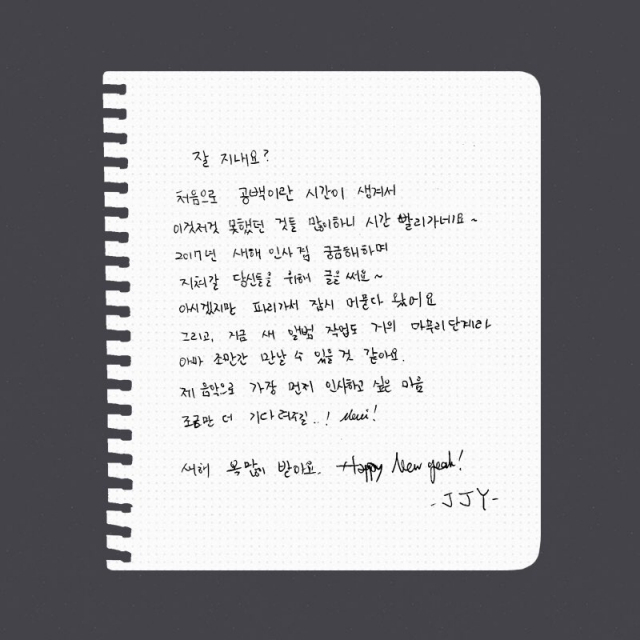 잘 지내요?
처음으로 공백이란 시간이 생겨서
이것저것 못했던 것들 많이하니 시간 빨리가네요~
2017년 새해 인사 겸 궁금해하며
지쳐갈 당신들을 위해 글을 써요~
아시겠지만 파리가서 잠시 머물다 왔어요
그리고, 지금 새 앨범 작업도 거의 마무리단계라
아마 조만간 만날 수 있을 것 같아요.
제 음악으로 가장 먼저 인사하고 싶은 마음
조금만 더 기다려주길..! Merci!
새해 복많이 받아요. Happy New year!
-JJY-